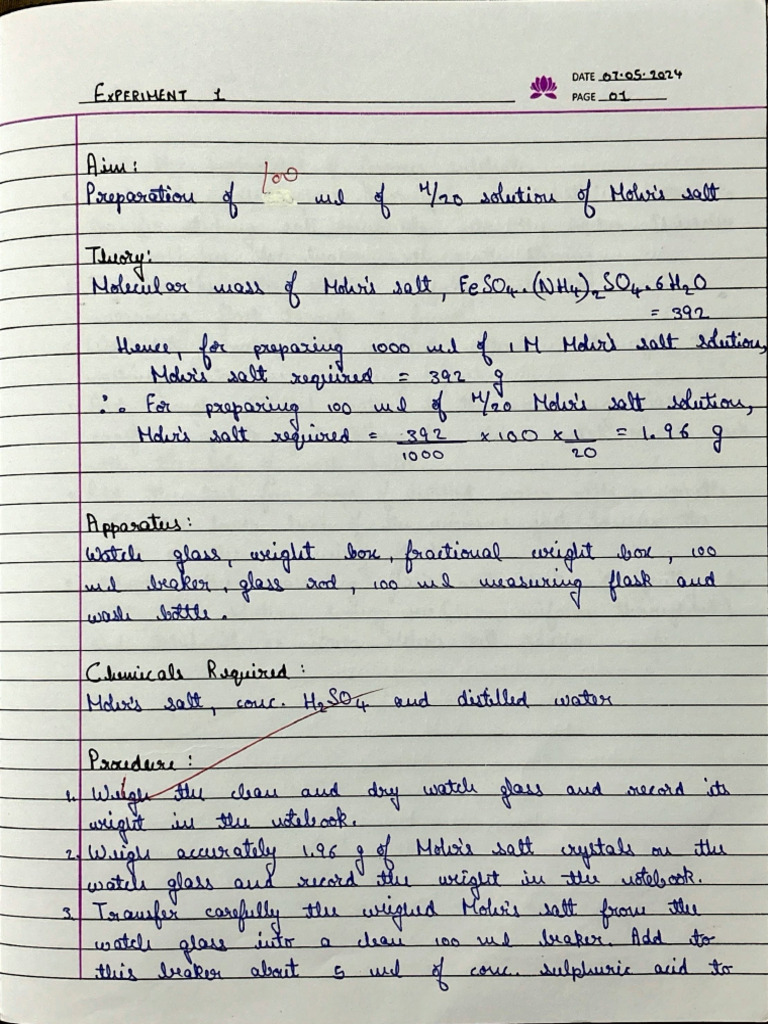 EXPERIMENT 1
DATE 07.05.2024
PAGE 01
Aim:
Preparation of 100 ml of M/20 solution of Mohr's salt
Theory:
Molecular mass of Mohr's salt, FeSO4.(NH4)2SO4.6H2O
= 392
Hence, for preparing 1000 ml of 1 M Mohr's salt solution,
Mohr's salt required = 392 g
∴ For preparing 100 ml of M/20 Mohr's salt solution,
Mohr's salt required = 392/1000 × 100 × 1/20 = 1.96 g
Apparatus:
Watch glass, weight box, fractional weight box, 100
ml beaker, glass rod, 100 ml measuring flask and
wash bottle.
Chemicals Required:
Mohr's salt, conc. H2SO4 and distilled water
Procedure:
1. Weigh the clean and dry watch glass and record its
weight in the notebook.
2. Weigh accurately 1.96 g of Mohr's salt crystals on the
watch glass and record the weight in the notebook.
3. Transfer carefully the weighed Mohr's salt from the
watch glass into a clean 100 ml beaker. Add to
this beaker about 5 ml of conc. sulphuric acid to